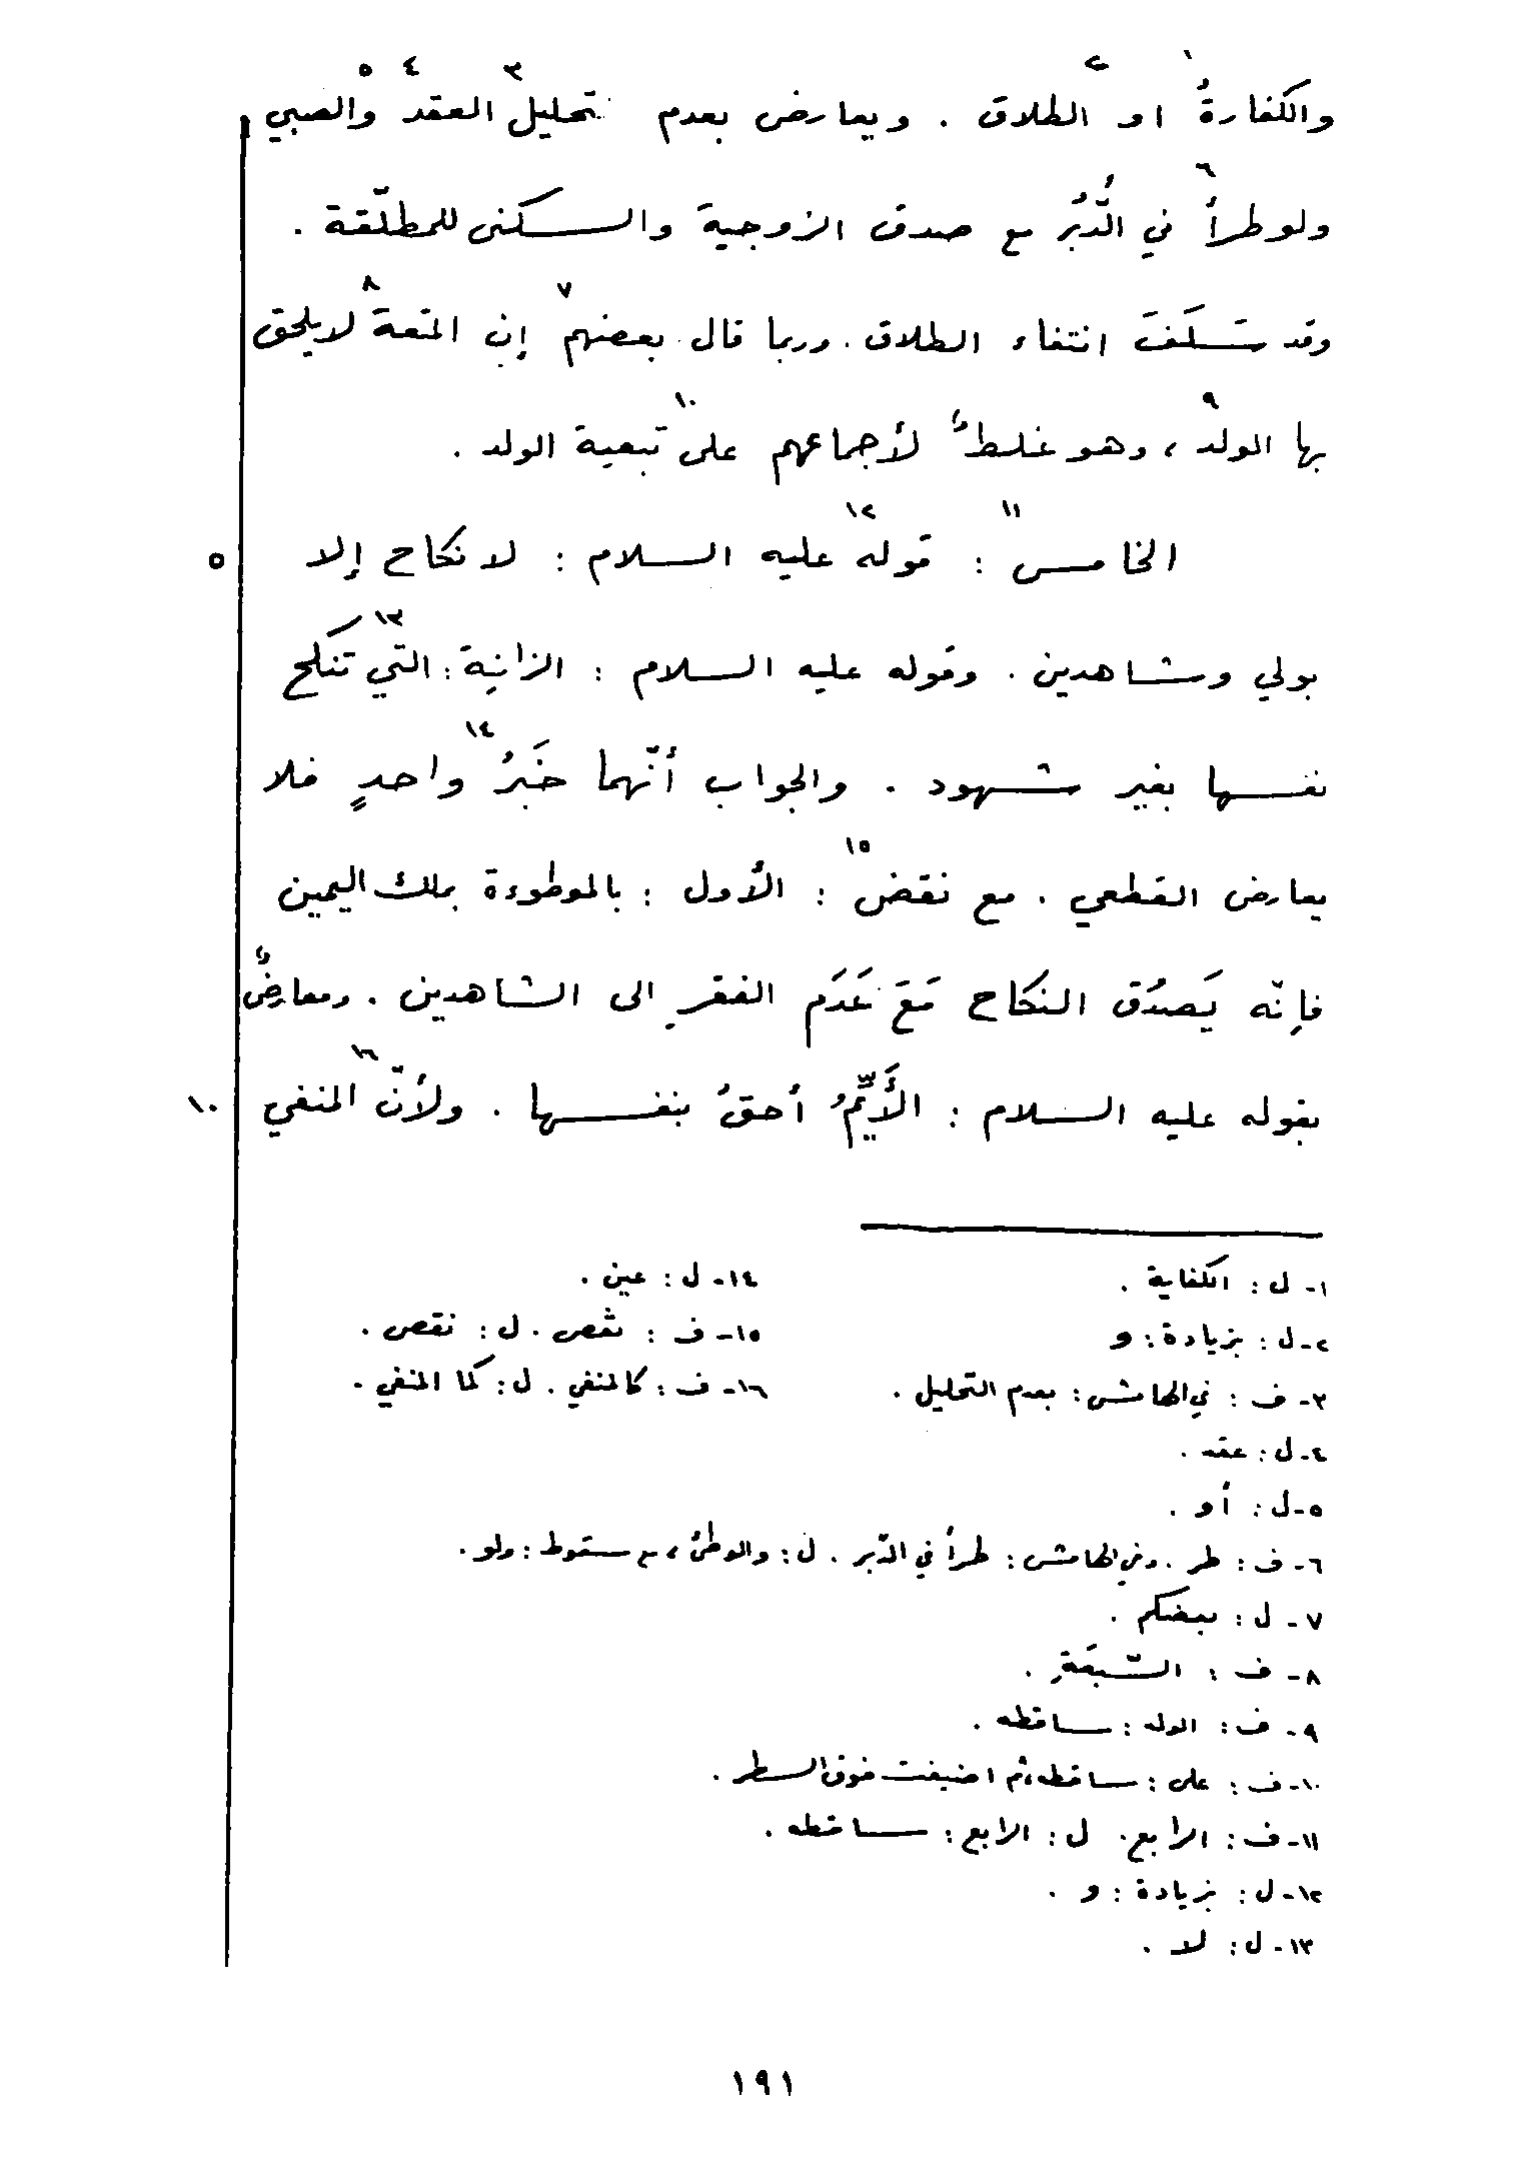 والكفارةُ١ او ٢الطلاق . ويعارض بعدم تحليل٣ العقد٤ ٥والصبي
ولو طرأ٦ في الدُّبُر مع صدق الزوجية والسكنى للمطلّقة .
وقد سَلَفَ انتفاء الطلاق . وربما قال بعضهم٧ إن المتعة٨ لا يلحق
بها الولد٩ ، وهو غلطٌ لأجماعهم على١٠ تبعية الولد .
الخامس١١ : قوله١٢ عليه السلام : لا نكاح إلا ٥
بولي وشاهدين . وقوله عليه السلام : الزانِيَة : التي١٣ تَنكح
نفسها بغير شهود . والجواب أنّهما خَبَرُ١٤ واحدٍ فلا
يعارض القطعي . مع نقض١٥ : الأول : بالموطوءة بملك اليمين
فإنّه يَصدُق النكاح مَعَ عَدَم الفقر الى الشاهدين . ومعارضٌ
بقوله عليه السلام : الأَيِّمُ أحقُ بنفسها . ولأنّ ١٦المنفي ١٠
١- ل : الكفاية .
٢- ل : بزيادة : و
٣- ف : في الهامش : بعدم التحليل .
٤- ل : عقد .
٥- ل : أو .
٦- ف : طر . وفي الهامش : طرأ في الدّبر . ل : والوطئ ، مع سقوط : ولو .
٧- ل : بعضكم .
٨- ف :
٩- ف : الولد : ساقطه .
١٠- ف : على : ساقطه ، ثم اضيفت فوق السطر .
١١- ف : الرابع . ل : الرابع : ساقطه .
١٢- ل : بزيادة : و .
١٣- ل : لا .
١٤- ل : عين .
١٥- ف : نقص . ل : نقص .
١٦- ف : كالمنفي . ل : كما المنفي .
١٩١